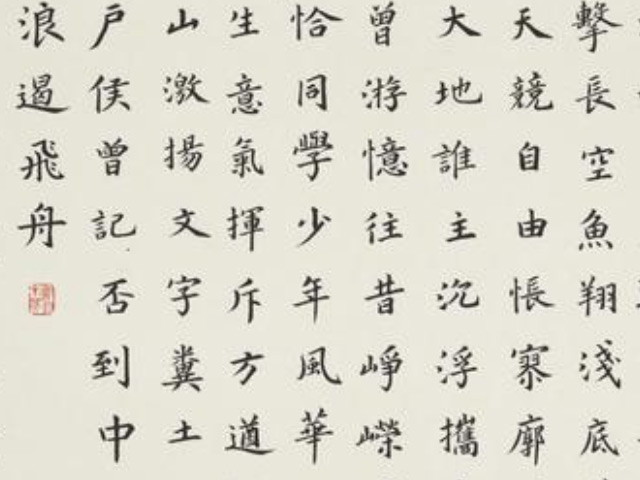 擊長空魚翔淺底
天競自由悵寥廓
大地誰主沉浮攜
曾游憶往昔崢嶸
恰同學少年風華
生意氣揮斥方遒
山激揚文字糞土
戶侯曾記否到中
浪遏飛舟